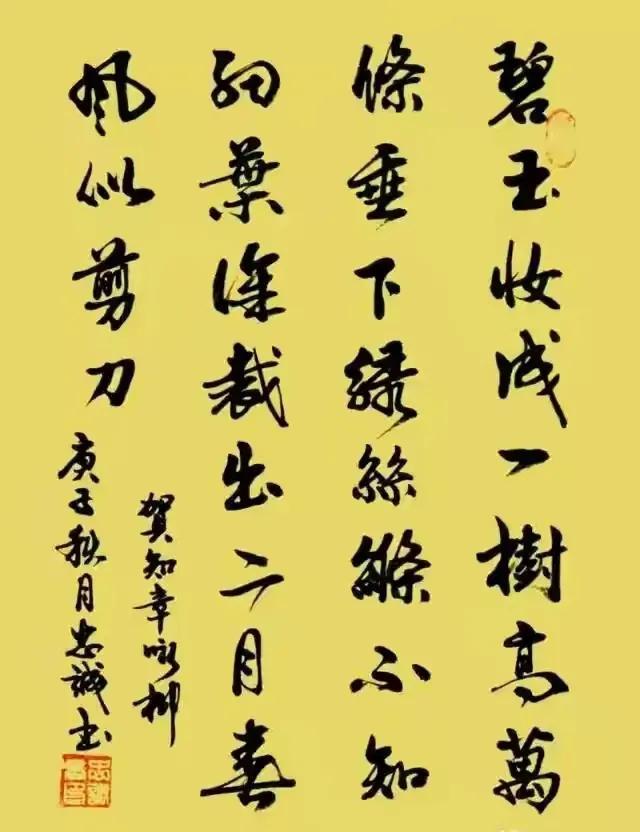 碧玉妆成一樹高萬
條垂下綠絲絛不知
細葉誰裁出二月春
風似剪刀
賀知章咏柳
庚子秋月忠誠书